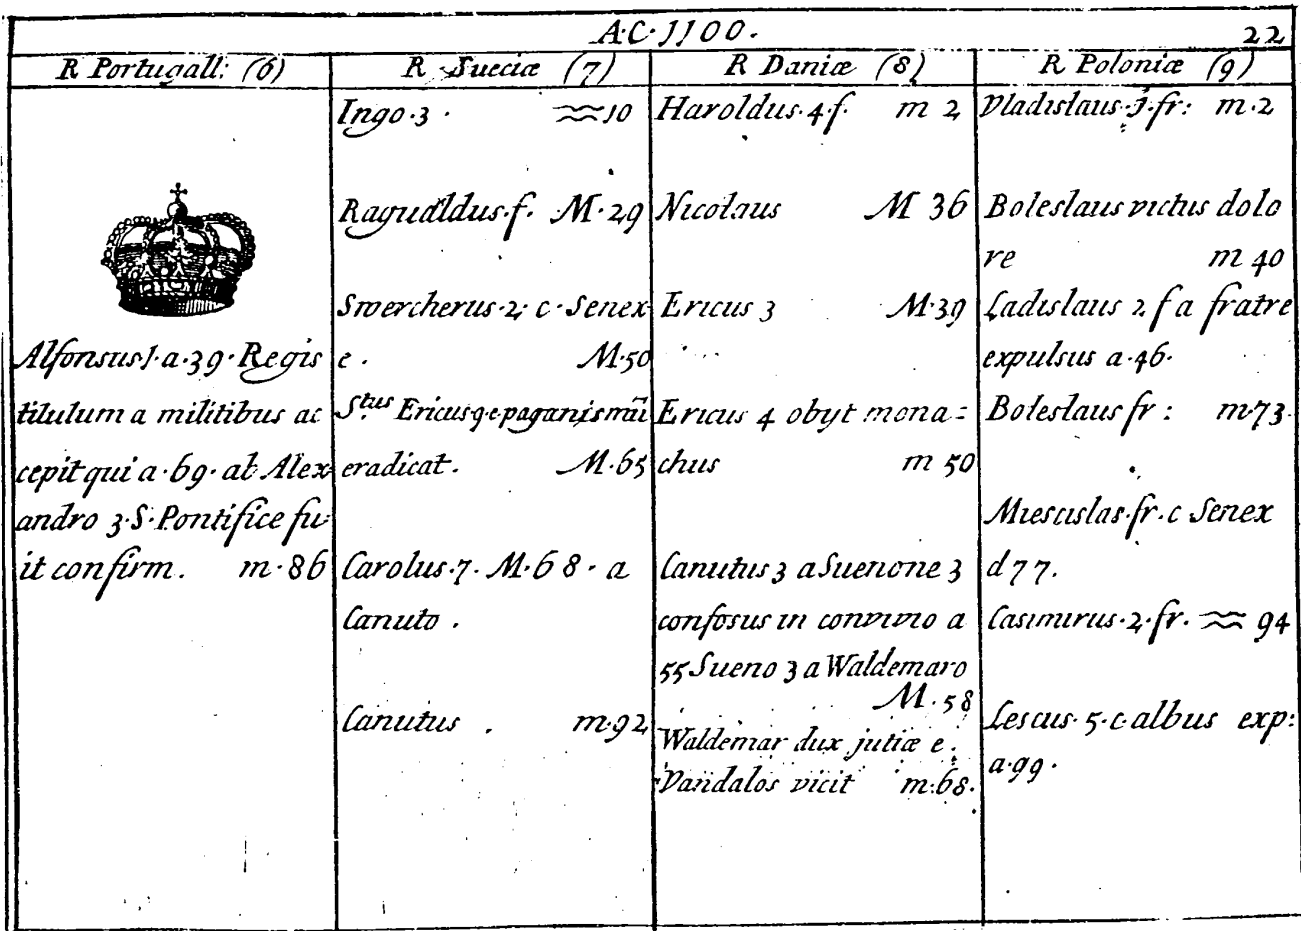 A·C·JJ00.
22
R Portugall: (6)
Alfonsus·J·a·39·Regis
titulum a militibus ac
cepit qui a·69·ab Alex
andro 3·S·Pontifice fu
it confirm. m·86
R Sueciæ (7)
Ingo·3· ≈10
Ragualdus·f. M·29
Swercherus·2· c·Senex
e. M·50
Stus Ericus·9·e·paganismū
eradicat. M·65
Carolus·7· M·68· a
Canuto.
Canutus. m·92
R Daniæ (8)
Haroldus·4·f. m 2
Nicolaus M 36
Ericus 3 M·39
Ericus 4 obyt mona=
chus m 50
Canutus 3 a Suenone 3
confosus in convivio a
55 Sueno 3 a Waldemaro
M·58
Waldemar dux jutiæ e.
Vandalos vicit m·68·
R Poloniæ (9)
Vladislaus·J·fr: m·2
Boleslaus victus dolo
re m 40
Ladislaus 2 f a fratre
expulsus a·46·
Boleslaus fr: m·73
Miescislas·fr·c Senex
d 77.
Casimirus·2·fr. ≈ 94
Lescus·5·c·albus exp:
a·99·